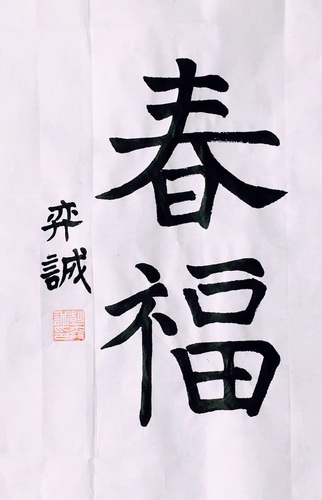 春福
弈誠